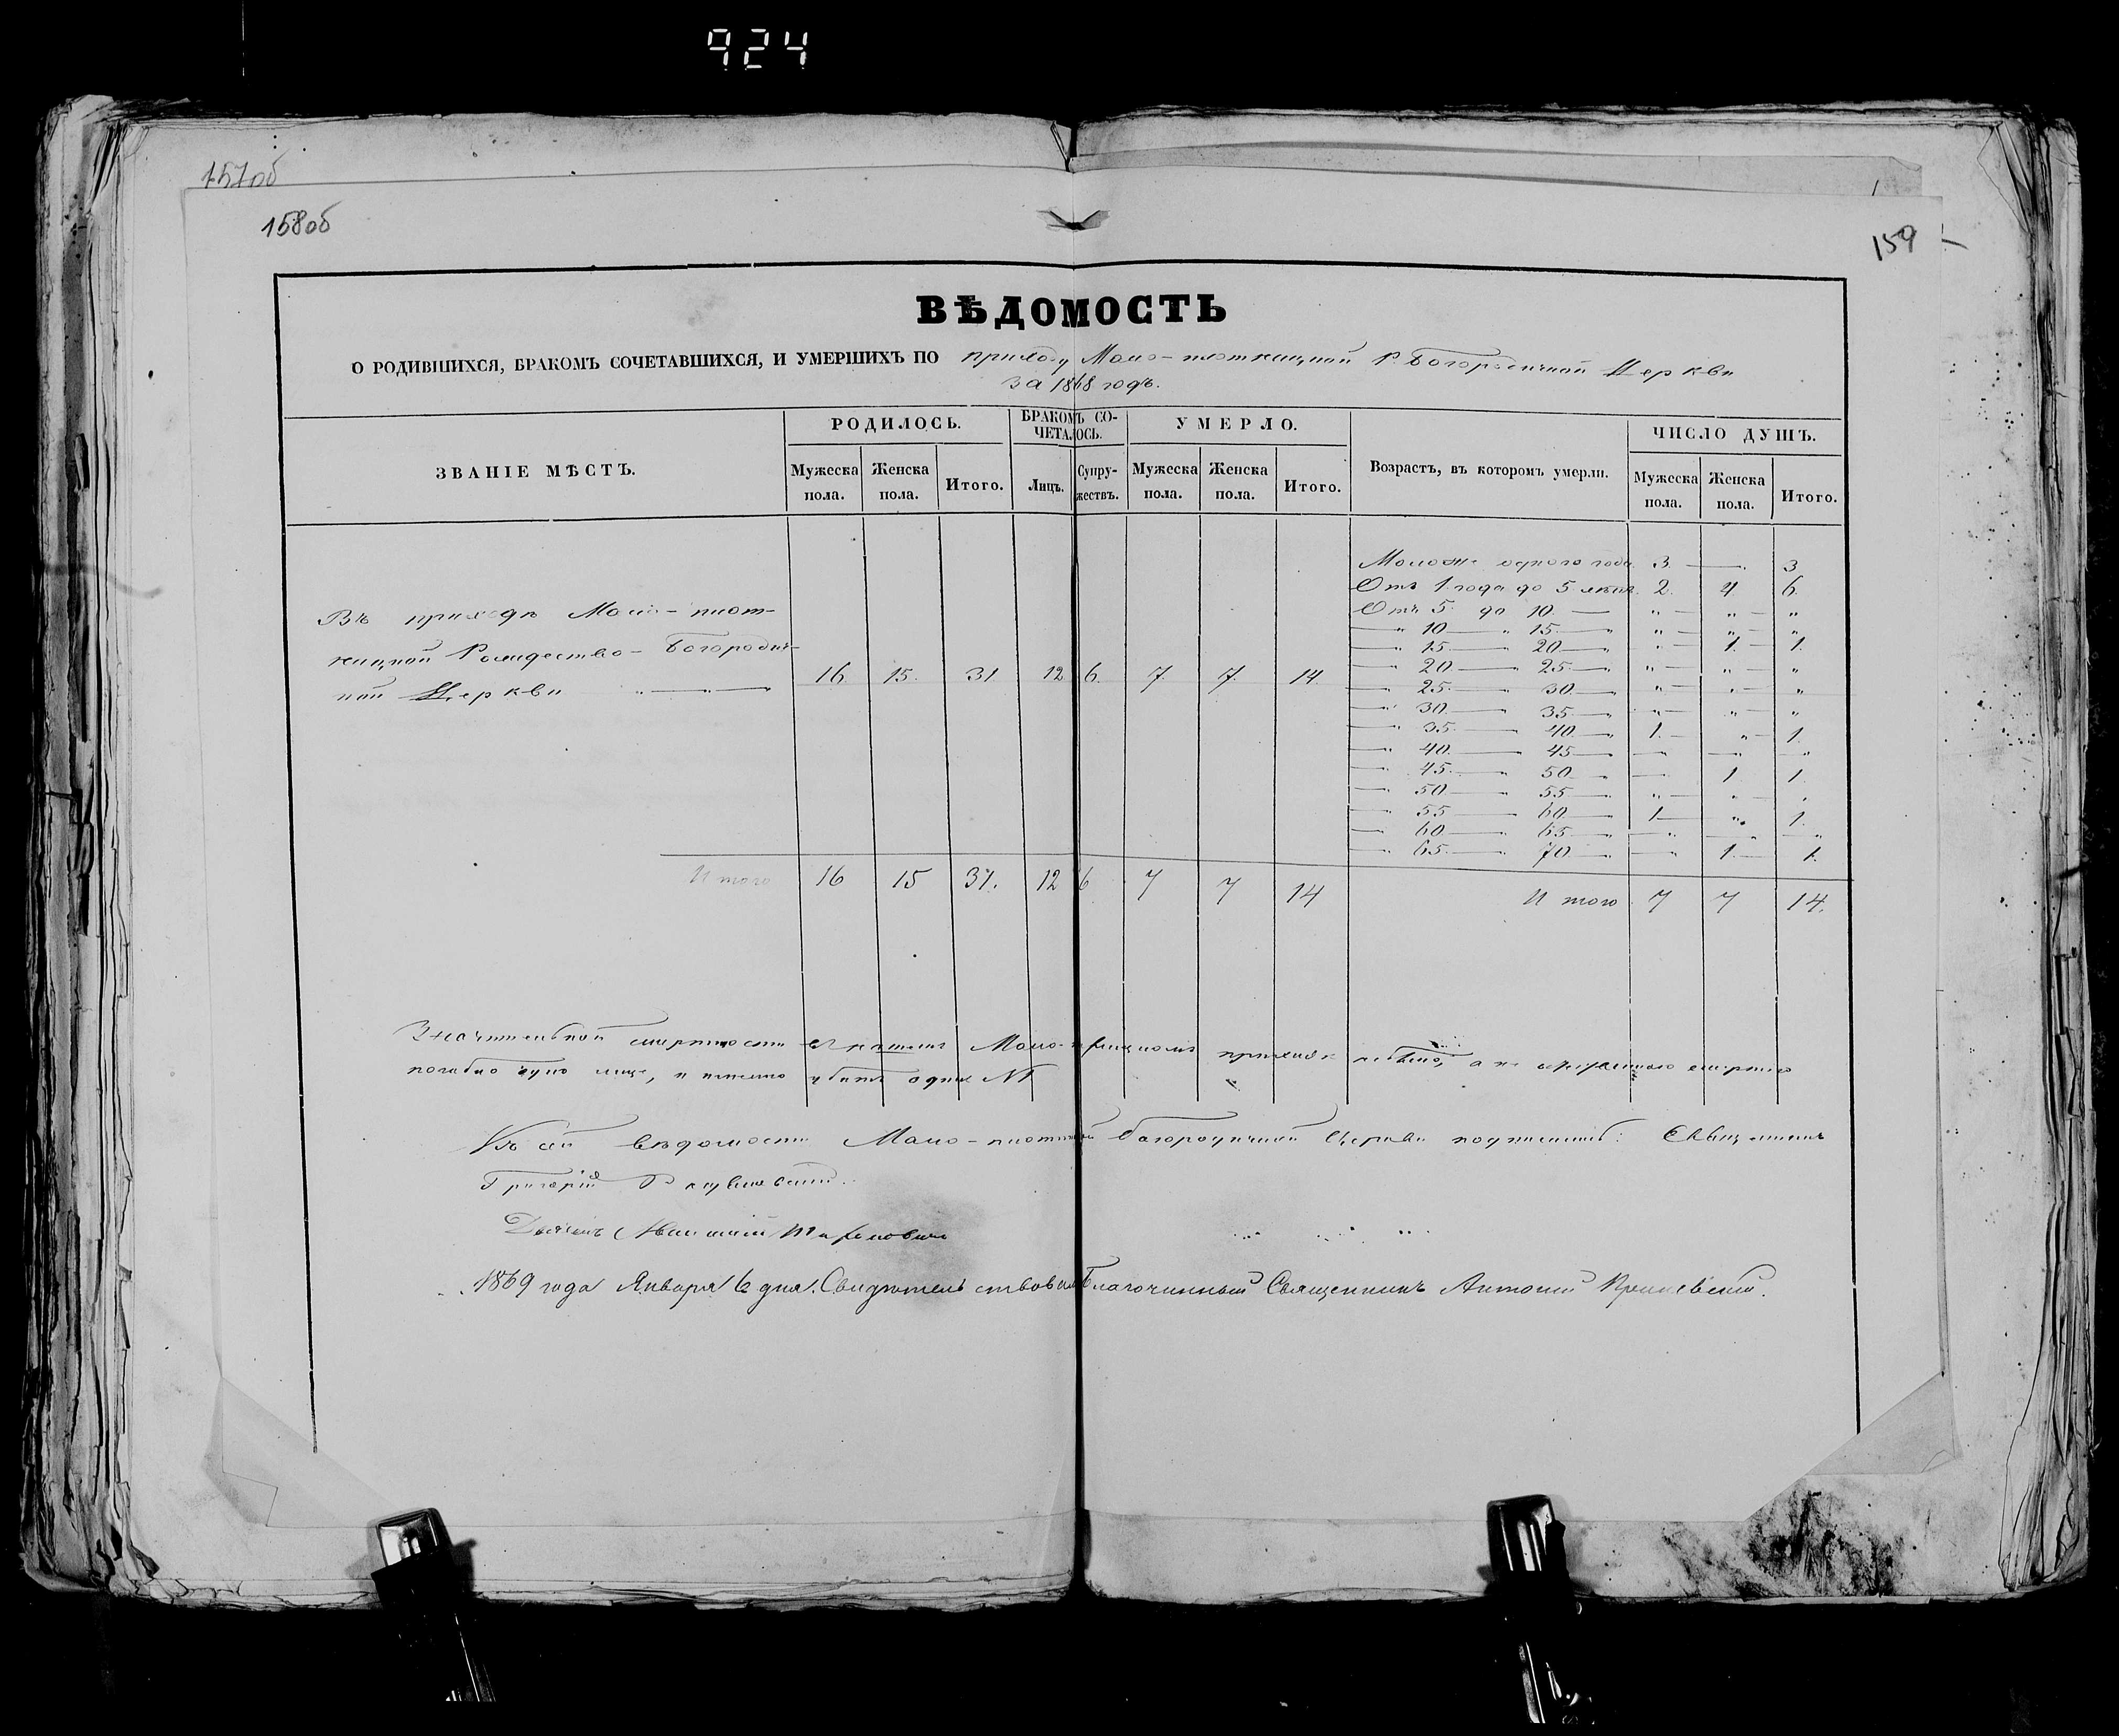 924
157об
158об
159
ВѢДОМОСТЬ
О РОДИВШИХСЯ, БРАКОМЪ СОЧЕТАВШИХСЯ, И УМЕРШИХЪ ПО приходу Мало-плотницкой Р. Богородичной Церкви
за 1868 годъ.
ЗВАНІЕ МѢСТЪ.
РОДИЛОСЬ.
Мужеска пола. Женска пола. Итого.
БРАКОМЪ СОЧЕТАЛОСЬ.
Лицъ. Супружествъ.
УМЕРЛО.
Мужеска пола. Женска пола. Итого.
Возрастъ, въ которомъ умерли.
ЧИСЛО ДУШЪ.
Мужеска пола. Женска пола. Итого.
Въ приходѣ Мало-плот-
ницкой Рождество-Богородич-
ной Церкви 16 15. 31 12 6. 7. 7. 14
Моложе одного года 3. — 3
Отъ 1 года до 5 лѣтъ 2. 4 6.
Отъ 5. до 10. — " — " — "
— " 10 — " 15. — " " — " — "
— " 15 — " 20 — " " — 1. — 1.
— " 20 — " 25 — " " — " "
— " 25. — " 30. — " " — " — "
— " 30 — " 35 — " " — " — "
— " 35 — " 40. — " 1. — " — 1.
— " 40. — " 45 — " — — " "
— " 45. — " 50 — " — 1 1.
— " 50 — " 55 — " " — " "
— " 55 — " 60 — " 1 — " 1.
— " 60 — " 65 — " — " — " — "
— " 65. — " 70 — " — " 1. — 1.
Итого 16 15 31. 12 6 7 7 14
Итого 7 7 14.
Значительной смертности въ приходѣ а не
лице, и убитъ одинъ №1
Къ сей вѣдомости Богородичной Церкви Священникъ
Григорій
1869 года Января 6 дня. Свидѣтельствовалъ Благочинный Священникъ Антоній